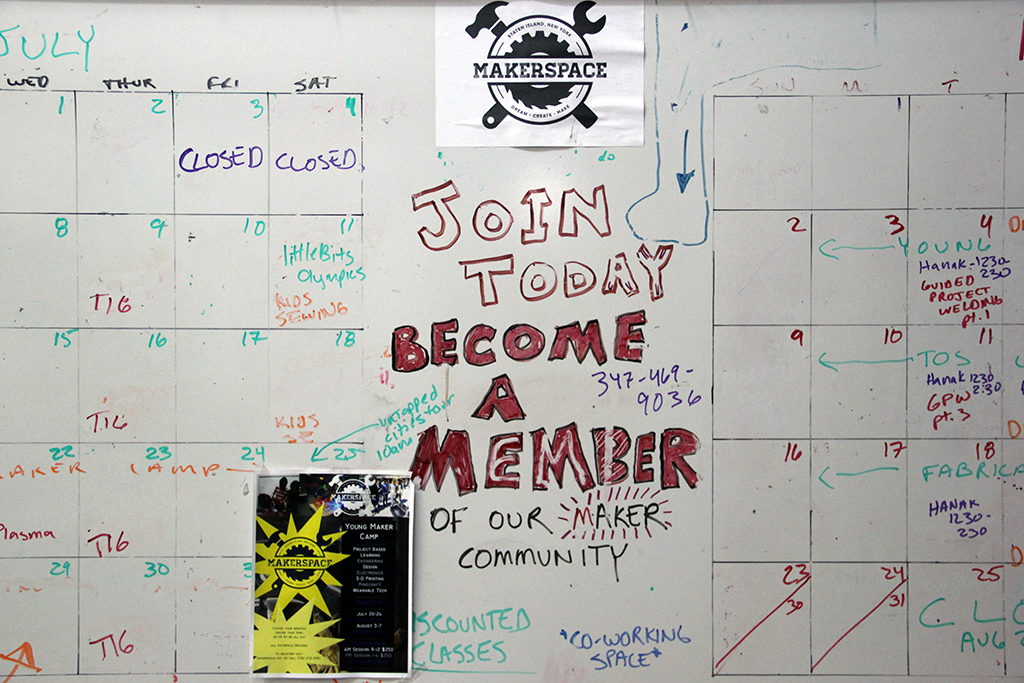 JULY
WED THUR FRI SAT
1 2 3 4
CLOSED CLOSED
8 9 10 11
littleBits
Olympics
TIG
KIDS
SEWING
15 16 17 18
TIG
KIDS
22 23 24 25
MAKER CAMP
Plasma
TIG
29 30
TIG
STATEN ISLAND, NEW YORK
MAKERSPACE
DREAM • CREATE • MAKE
do
JOIN
TODAY
BECOME
A
MEMBER
OF OUR MAKER
COMMUNITY
347-469-
9036
UNTAPPED
cities tour
10am
DISCOUNTED
CLASSES
*CO-WORKING
SPACE*
MAKERSPACE
YOUNG MAKER
CAMP
PROJECT BASED
LEARNING
ENGINEERING
DESIGN
ELECTRONICS
3-D PRINTING
MINECRAFT
WEARABLE TECH
JULY 20-24
AUGUST 3-7
AM SESSION 9-12 $250
PM SESSION 1-4 $250
MAKERSPACE
SUN M T
1
2 3 4
YOUNG
HANAK-1230-
230
GUIDED
PROJECT
WELDING
pt. 1
9 10 11
TOS
HANAK 1230
2:30
GPW
pt. 3
16 17 18
FABRICA
HANAK
1230-
230
23 24 25
30 31
CLO
AUG